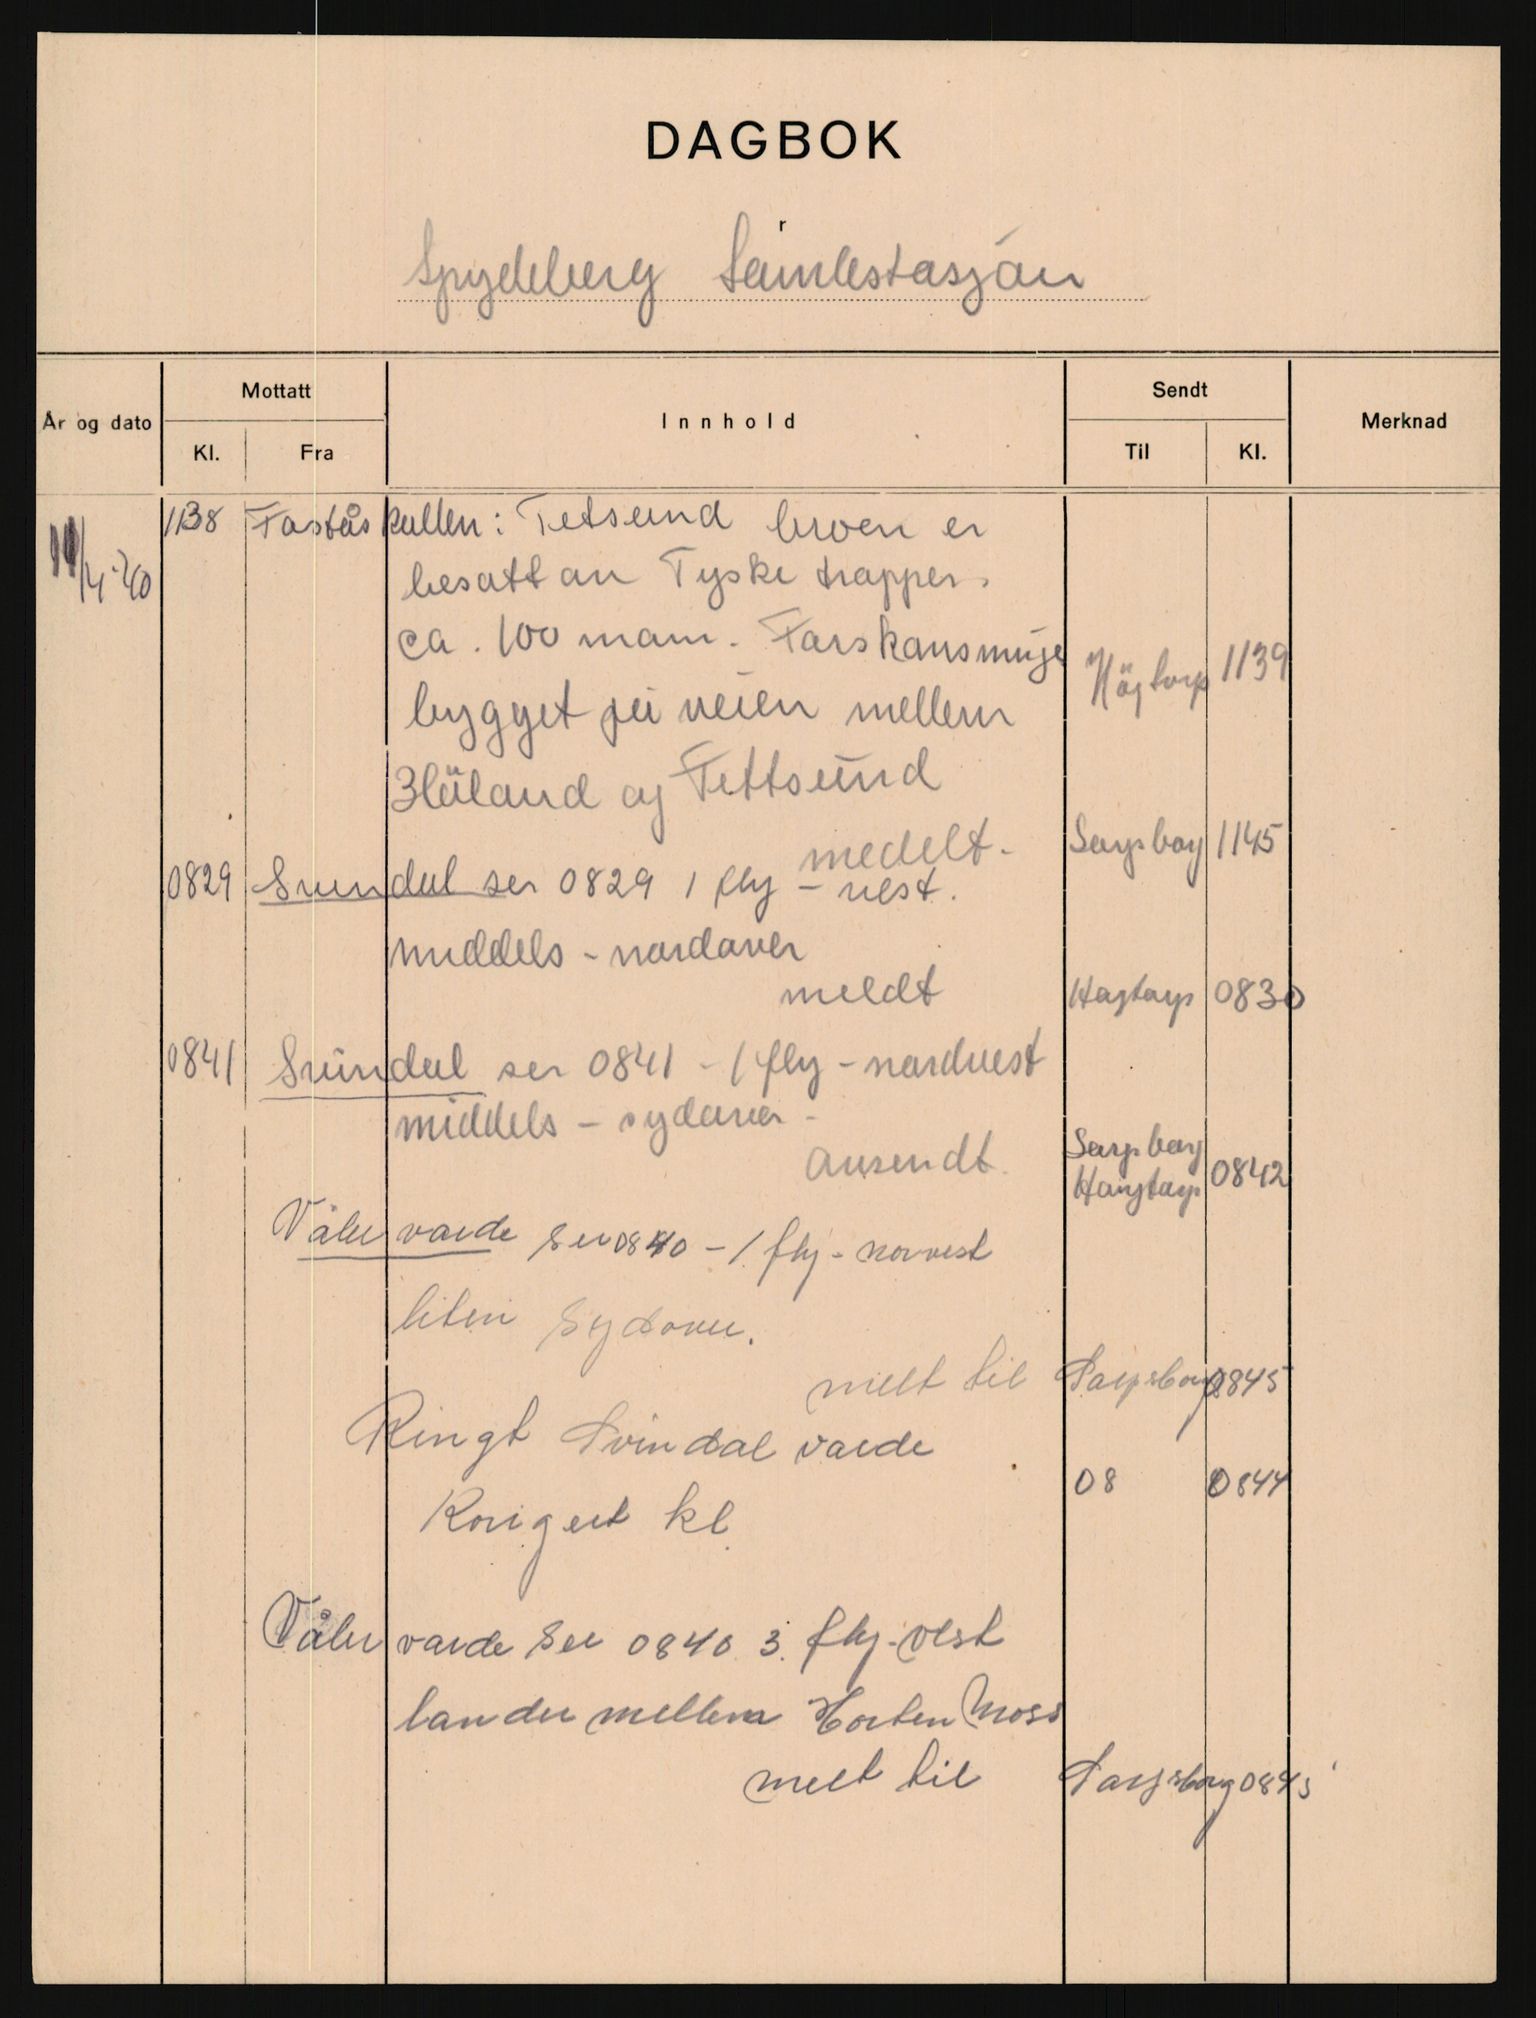 DAGBOK
Spydeberg Samlestasjon
År og dato Mottatt Kl. Fra Innhold Sendt Til Kl. Merknad
/4-40 1138 Fastås kullen: Fetsund broen er
besatt av Tyske tropper.
ca. 100 mann. Forskansninge
bygget på veien mellem Høgtorp 1139
Høland og Fettsund
medelt. Sarpsborg 1145
0829 Svindal ser 0829 1 fly - vest.
middels - nordover
meldt Høgtorp 0830
0841 Svindal ser 0841 - 1 fly - nordvest
middels - sydover -
avsendt. Sarpsborg Høgtorp 0842
Våler varde ser 0840 - 1 fly - norvest
liten sydover.
melt til Sarpsborg 0845
Ringt Svindal varde
08 0844
kl.
Våler varde ser 0840 3. fly - vest
lander mellem Horten Moss
melt til Sarpsborg 0845